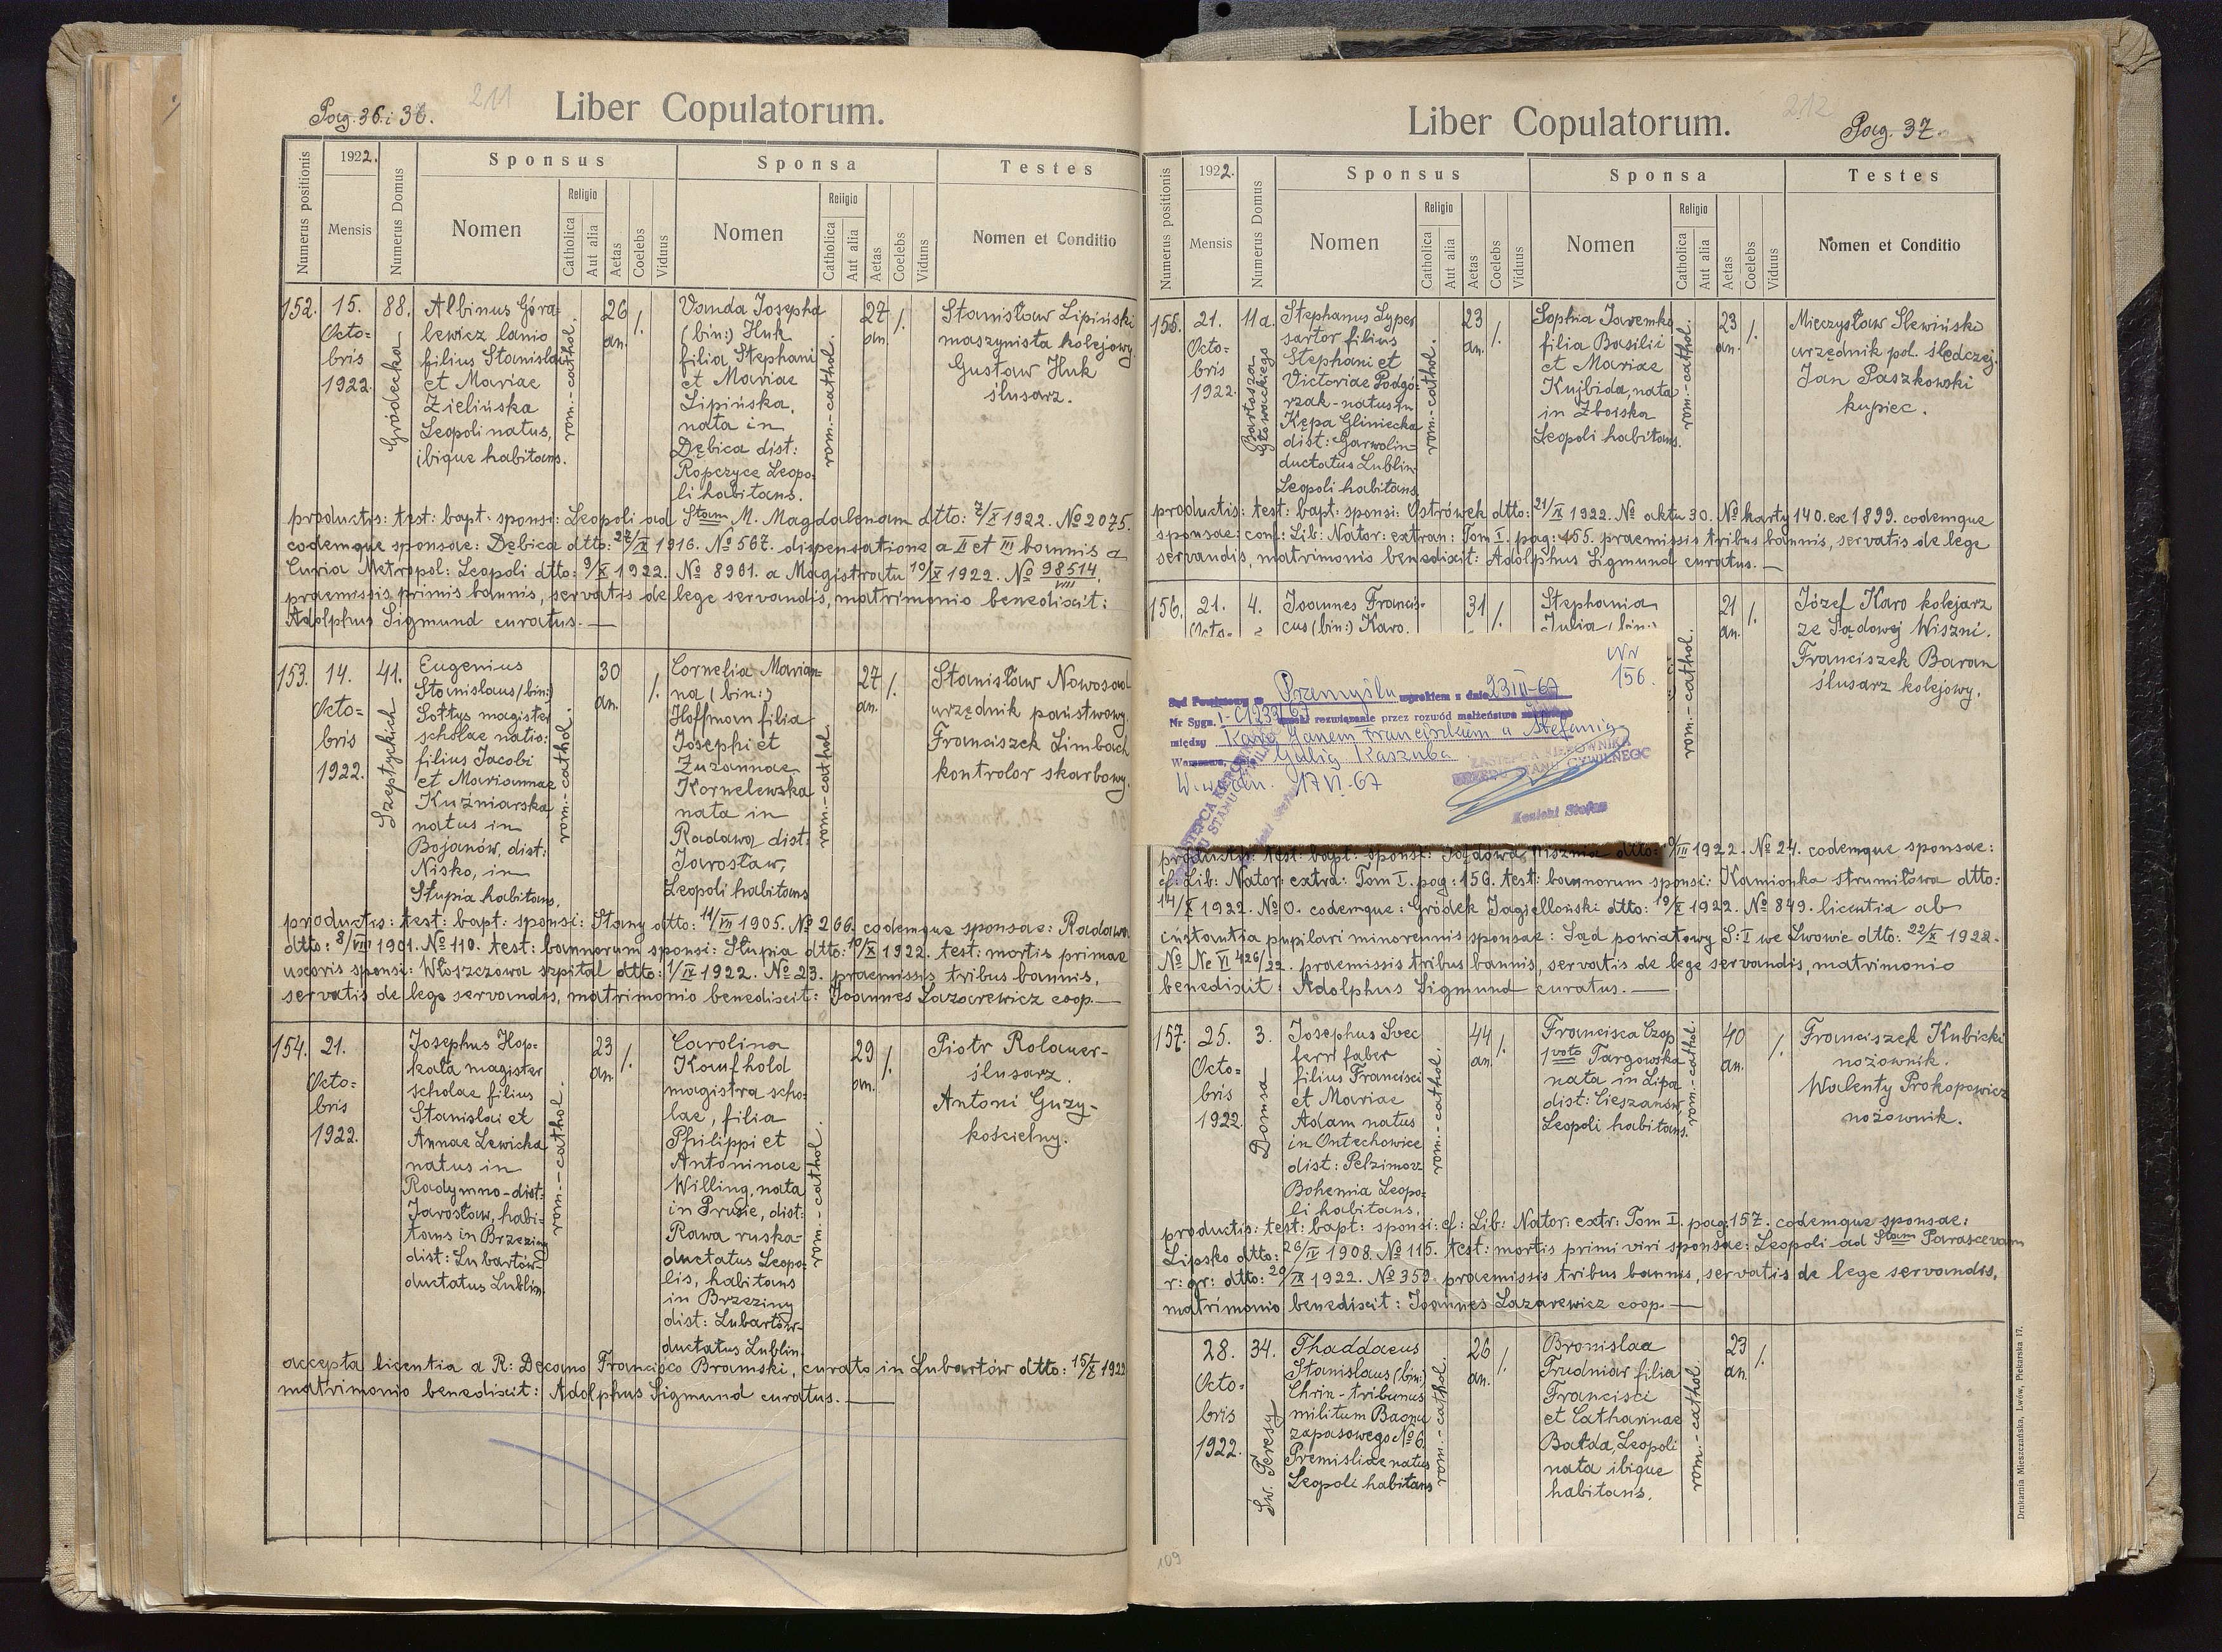 Pag. 36. i 36.
211
Liber Copulatorum.
Numerus positionis
1922.
Mensis
Numerus Domus
Sponsus
Nomen
Religio
Catholica
Aut alia
Aetas
Coelebs
Viduus
Sponsa
Nomen
Religio
Catholica
Aut alia
Aetas
Coelebs
Viduus
Testes
Nomen et Conditio
152.
15.
Octo=
bris
1922.
88.
Gródecka
Albinus Góra-
lewicz lanio
filius Stanislai
et Mariae
Zielińska
Leopoli natus,
ibique habitans.
rom.-cathol.
26
an.
/.
Vanda Josepha
(bin:) Huk
filia Stephani
et Mariae
Lipińska,
nata in
Dębica dist:
Ropczyce Leopo-
li habitans.
rom.-cathol.
27
an.
/.
Stanisław Lipiński
maszynista kolejowy.
Gustaw Huk
ślusarz.
productis: test: bapt: sponsi: Leopoli ad Stam M. Magdalenam dtto: 7/X 1922. No 2075.
eodemque sponsae: Dębica dtto: 27/IX 1916. No 567. dispensatione a II et III bannis a
Curia Metropol: Leopoli dtto: 9/X 1922. No 8961. a Magistratu 10/X 1922. No 98514/VIII.
praemissis primis bannis, servatis de lege servandis, matrimonio benedixit:
Adolphus Sigmund curatus.—
153.
14.
Octo=
bris
1922.
41.
Szeptyckich
Eugenius
Stanislaus (bin:)
Sołtys magister
scholae natio:
filius Jacobi
et Mariannae
Kuźniarska
natus in
Bojanów, dist:
Nisko, in
Słupia habitans.
rom.-cathol.
30
an.
/.
Cornelia Marian-
na (bin:)
Hoffman filia
Josephi et
Zuzannae
Kornelewska
nata in
Radawa dist:
Jarosław,
Leopoli habitans
rom.-cathol.
27
an.
/.
Stanisław Nowosad
urzędnik państwowy.
Franciszek Limbach
kontrolor skarbowy.
productis: test: bapt: sponsi: Stany dtto: 11/VII 1905. No 266. eodemque sponsae: Radawa
dtto: 8/VIII 1901. No 110. test: bannorum sponsi: Słupia dtto: 10/X 1922. test: mortis primae
uxoris sponsi: Włoszczowa szpital dtto: 1/IX 1922. No 23. praemissis tribus bannis,
servatis de lege servandis, matrimonio benedixit: Joannes Lazarewicz coop.—
154.
21.
Octo=
bris
1922.
Josephus Hop-
kała magister
scholae filius
Stanislai et
Annae Lewicka
natus in
Radymno-dist:
Jarosław, habi-
tans in Brzeziny
dist: Lubartów-
ductatus Lublin.
rom.-cathol.
23
an
/.
Carolina
Kaufhold
magistra scho-
lae, filia
Philippi et
Antoninae
Willing, nata
in Prusie, dist:
Rawa ruska-
ductatus Leopo-
lis, habitans
in Brzeziny
dist: Lubartów-
ductatus Lublin.
rom.-cathol.
29
an.
/.
Piotr Rolauer-
ślusarz.
Antoni Guzy-
kościelny.
accepta licentia a R: Decano Francisco Bramski, curato in Lubartów dtto: 15/X 1922
matrimonio benedixit: Adolphus Sigmund curatus.—
212
Liber Copulatorum.
Pag. 37.
Numerus positionis
1922.
Mensis
Numerus Domus
Sponsus
Nomen
Religio
Catholica
Aut alia
Aetas
Coelebs
Viduus
Sponsa
Nomen
Religio
Catholica
Aut alia
Aetas
Coelebs
Viduus
Testes
Nomen et Conditio
155.
21.
Octo=
bris
1922.
11a.
Bartosza
Głowackiego
Stephanus Syper
sartor filius
Stephani et
Victoriae Podgó-
rzak-natus in
Kępa Gliniecka
dist: Garwolin-
ductatus Lublin.
Leopoli habitans.
rom.-cathol.
23
an.
/.
Sophia Jaremko
filia Basilii
et Mariae
Kujbida, nata
in Zboiska
Leopoli habitans.
rom.-cathol.
23
an.
/.
Mieczysław Slewiński
urzędnik pol. śledczej.
Jan Paszkowski
kupiec.
productis: test: bapt: sponsi: Ostrówek dtto: 21/IX 1922. No aktu 30. No karty 140. ex 1899. eodemque
sponsae: conf: Lib: Nator: extran: Tom I. pag: 455. praemissis tribus bannis, servatis de lege
servandis, matrimonio benedixit: Adolphus Sigmund curatus.—
156.
21.
Octo-
4.
Joannes Francis-
cus (bin:) Karo.
31
/.
Stephania
Julia (bin:)
rom.-cathol.
21
an.
/.
Józef Karo kolejarz
ze Sądowej Wiszni.
Franciszek Baran
ślusarz kolejowy.
Nr
156.
Sąd Powiatowy w Przemyślu wyrokiem z dnia 23 III-67
Nr Sygn. I-C123/67 orzekł rozwiązanie przez rozwód małżeństwa
między Karo Janem Franciszkiem a Stefanią
Warszawa, dnia Julią Kaszuba
W-wa dn. 17 VI-67
ZASTĘPCA KIEROWNIKA
URZĘDU STANU CYWILNEGO
Konicki Stefan
productis: test: bapt: sponsi: Sądowa Wisznia dtto: 9/III 1922. No 24. eodemque sponsae:
cf: Lib: Nator: extra: Tom I. pag: 156. test: bannorum sponsi: Kamionka strumiłowa dtto:
14/X 1922. No 0. eodemque: Gródek Jagielloński dtto: 19/X 1922. No 849. licentia ab
instantia pupilari minorennis sponsae: Sąd powiatowy S: I we Lwowie dtto: 22/X 1922.
No Ne VI 426/22. praemissis tribus bannis, servatis de lege servandis, matrimonio
benedixit: Adolphus Sigmund curatus.—
157.
25.
Octo=
bris
1922.
3.
Domsa
Josephus Svec
ferri faber
filius Francisci
et Mariae
Adam natus
in Ontechowice
dist: Pelzimov
Bohemia Leopo-
li habitans.
rom.-cathol.
44
an.
/.
Francisca Czop
1voto Targowska
nata in Lipa
dist: Cieszanów,
Leopoli habitans.
rom.-cathol.
40
an.
/.
Franciszek Kubicki
nożownik.
Walenty Prokopowicz
nożownik.
productis: test: bapt: sponsi: cf: Lib: Nator: extr: Tom I. pag: 157. eodemque sponsae:
Lipsko dtto: 26/IV 1908. No 115. test: mortis primi viri sponsae: Leopoli ad Stam Parascevam
r: gr: dtto: 20/IX 1922. No 359. praemissis tribus bannis, servatis de lege servandis,
matrimonio benedixit: Joannes Lazarewicz coop.—
28.
Octo-
bris
1922.
34.
Św. Teresy
Thaddaeus
Stanislaus (bin:)
Chrin-tribunus
militum Baonu
zapasowego No 6
Premisliae natus
Leopoli habitans
rom.-cathol.
26
an.
/.
Bronislaa
Trudniar filia
Francisci
et Catharinae
Batda, Leopoli
nata ibique
habitans.
rom.-cathol.
23
an.
/.
109
Drukarnia Mieszczańska, Lwów, Piekarska 17.